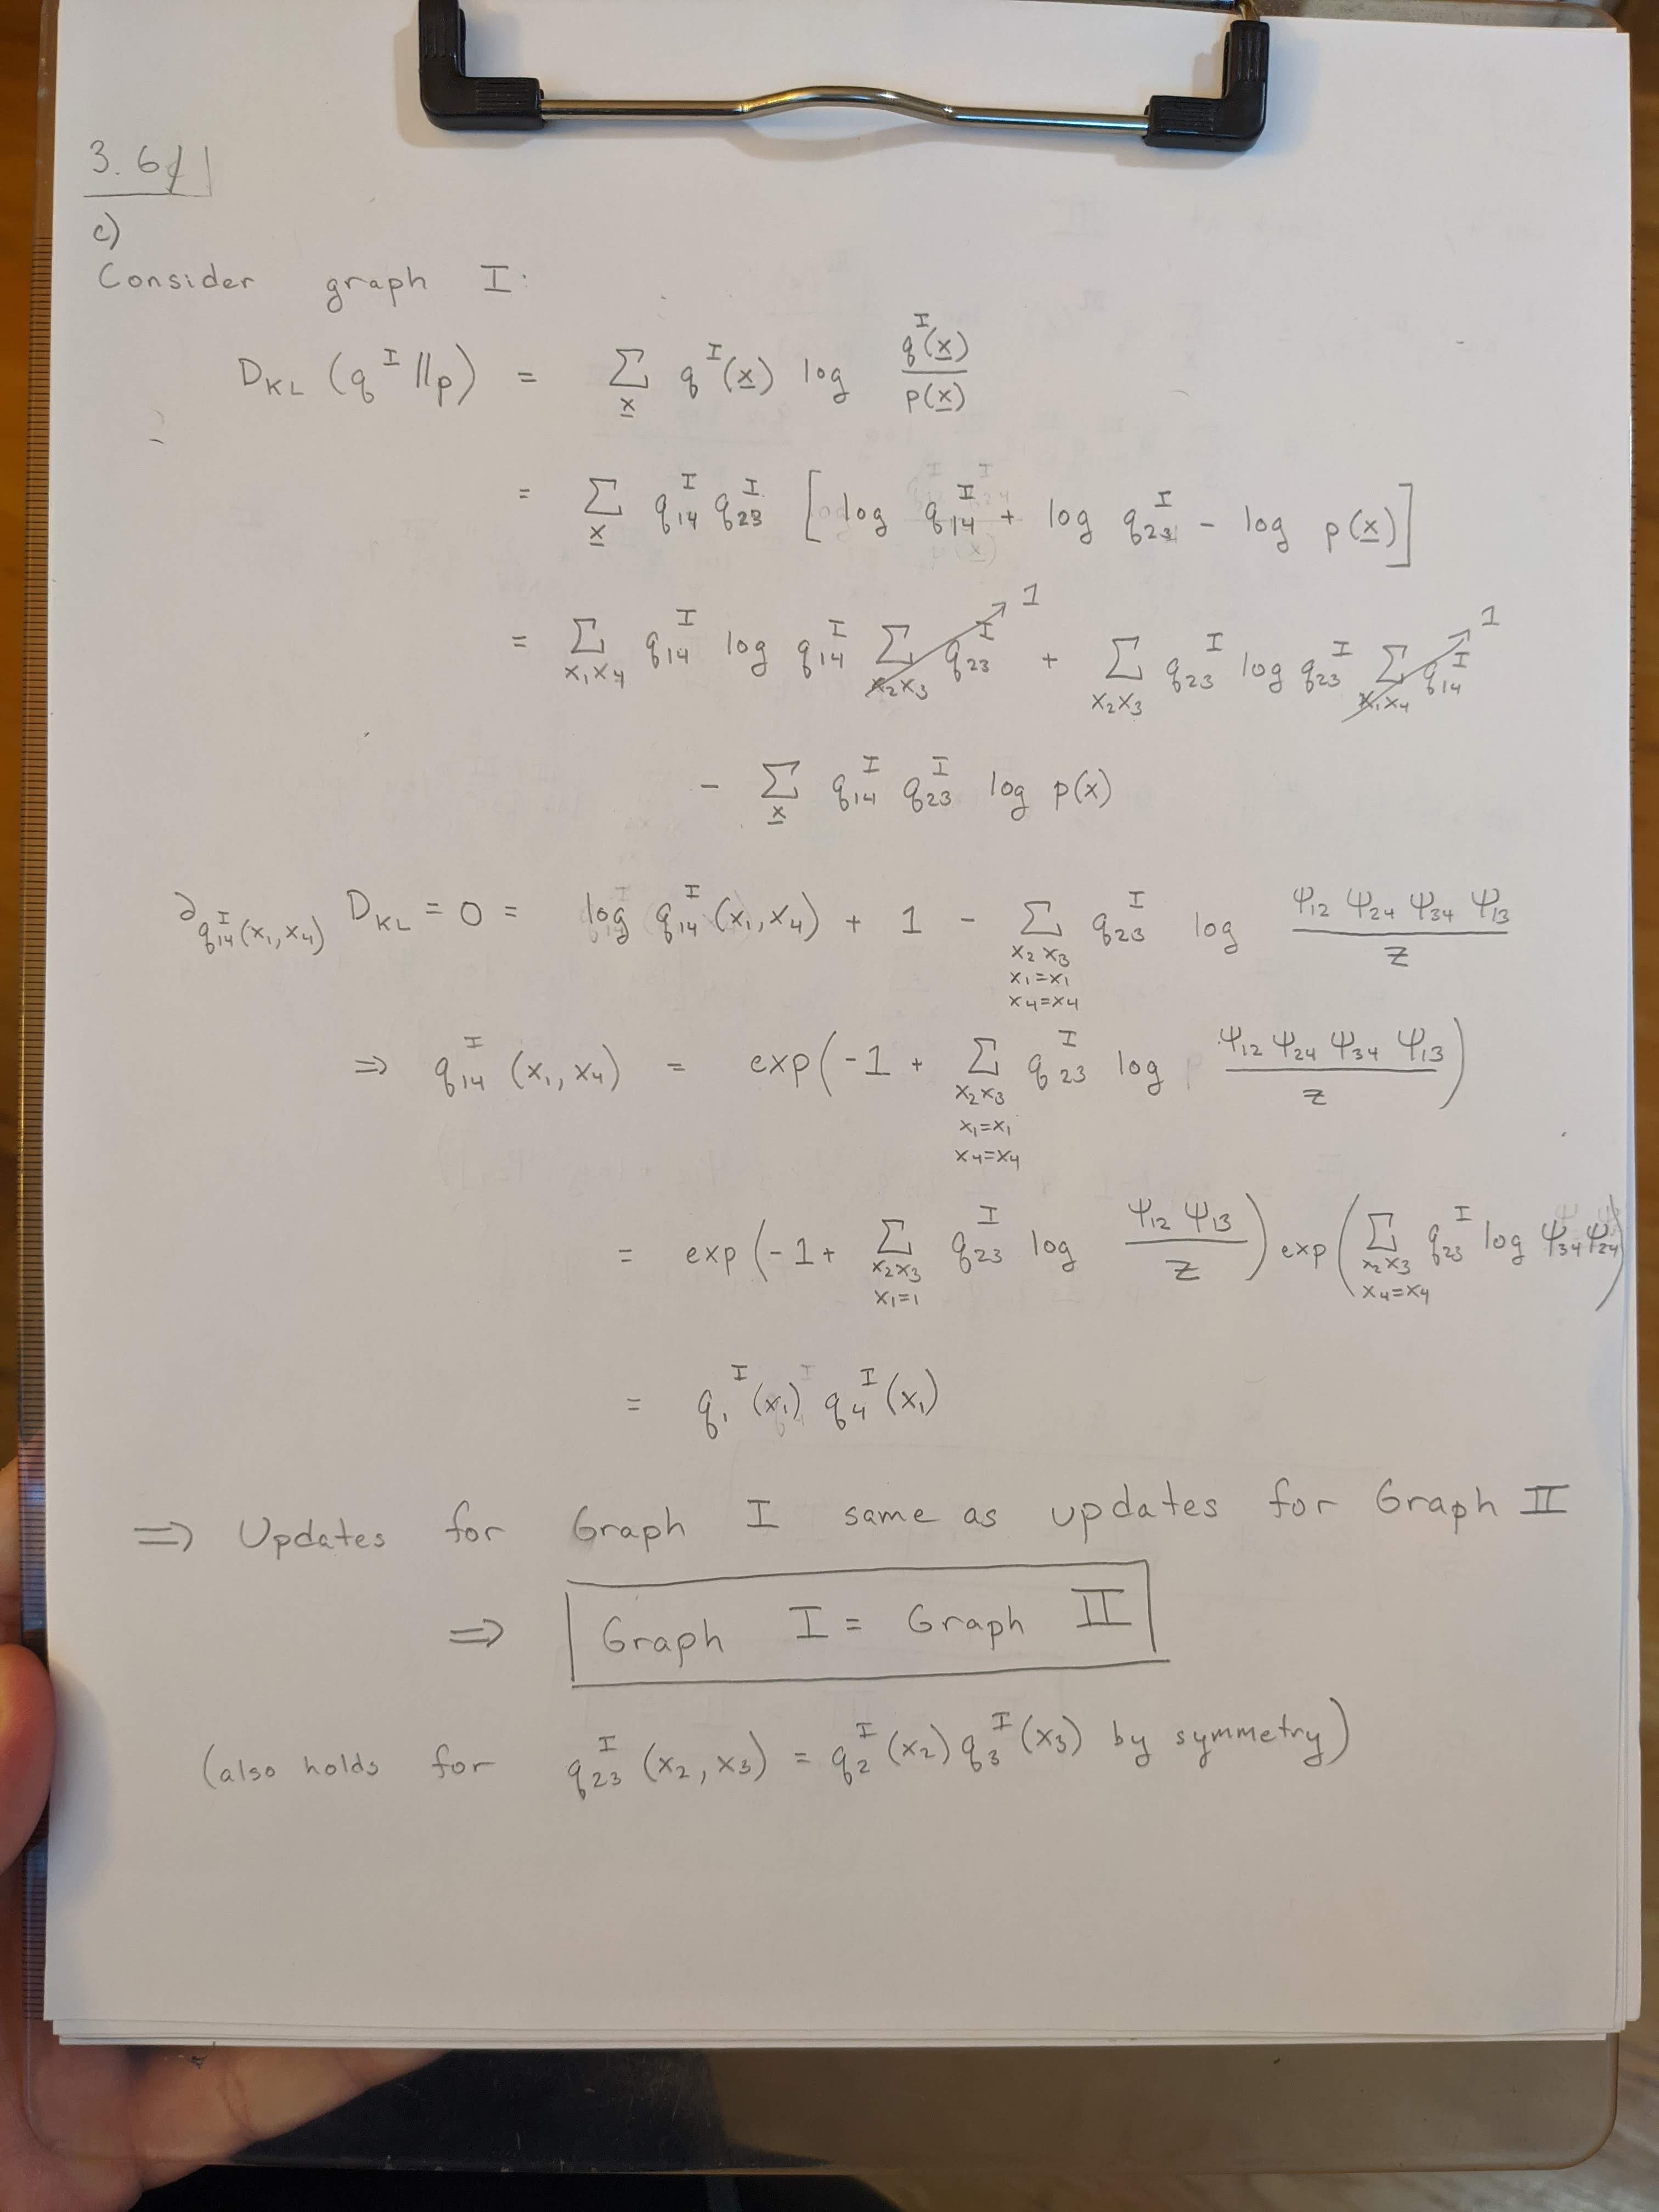 3.6
c)
Consider graph I:
D_KL (q^I || p) = Σ_x q^I(x) log q^I(x) / p(x)
= Σ_x q_14^I q_23^I [ log q_14^I + log q_23^I - log p(x) ]
= Σ_{x1 x4} q_14^I log q_14^I Σ_{x2 x3} q_23^I → 1 + Σ_{x2 x3} q_23^I log q_23^I Σ_{x1 x4} q_14^I → 1
- Σ_x q_14^I q_23^I log p(x)
∂_{q_14^I(x1, x4)} D_KL = 0 = log q_14^I (x1, x4) + 1 - Σ_{x2 x3, x1=x1, x4=x4} q_23^I log ψ12 ψ24 ψ34 ψ13 / z
⇒ q_14^I (x1, x4) = exp( -1 + Σ_{x2 x3, x1=x1, x4=x4} q_23^I log ψ12 ψ24 ψ34 ψ13 / z )
= exp( -1 + Σ_{x2 x3, x1=1} q_23^I log ψ12 ψ13 / z ) exp( Σ_{x2 x3, x4=x4} q_23^I log ψ34 ψ24 )
= q_1^I (x1) q_4^I (x1)
⇒ Updates for Graph I same as updates for Graph II
⇒ Graph I = Graph II
(also holds for q_23^I (x2, x3) = q_2^I (x2) q_3^I (x3) by symmetry)